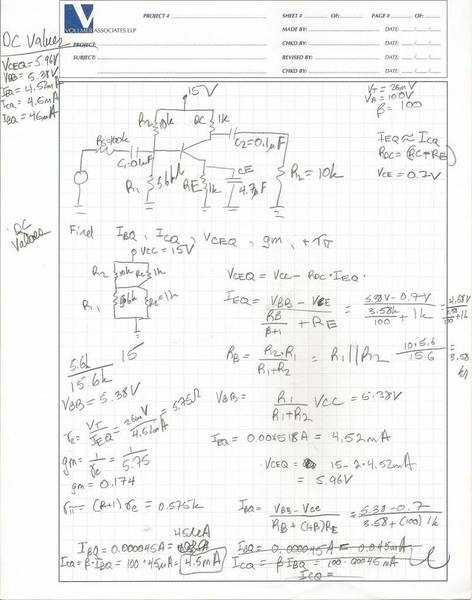 VOLLMER ASSOCIATES LLP
PROJECT #
SHEET # OF: PAGE # OF:
MADE BY: DATE:
CHKD BY: DATE:
REVISED BY: DATE:
CHKD BY: DATE:
PROJECT:
SUBJECT:
DC Values
VCEQ = 5.96V
VBB = 5.38V
IEQ = 4.52mA
ICQ = 4.5mA
IBQ = 45mA
15V
R2 10k
RC 1k
C2 = 0.1μF
RS = 100k
C1 = 0.1μF
R1 5.6k
RE 1k
CE 4.7μF
R2 = 10k
VT = 26mV
VA = 100V
β = 100
IEQ ≈ ICQ
RDC = (RC + RE)
VCE = 0.7V
DC Values
Find IBQ, ICQ, VCEQ, gm, + rπ
VCC = 15V
R2 10k RC 1k
R1 5.6k RE = 1k
VCEQ = VCC - RDC · IEQ.
IEQ = VBB - VCE / RB/β+1 + RE = 5.38V - 0.7V / 3.58k/100 + 1k = 4.68V / 3.58/100 + 1k
RB = R2·R1 / R1+R2 = R1 || R2 10·5.6 / 15.6 = 3.58 kΩ
5.6k / 15.6k 15
VBB = 5.38V
VBB = R1 / R1+R2 VCC = 5.38V
re = VT / IEQ = 26mV / 4.52mA = 5.75Ω
IEQ = 0.004518A = 4.52mA
gm = 1/re = 1/5.75
gm = 0.174
VCEQ = 15 - 2·4.52mA
= 5.96V
rπ = (β+1) re = 0.575k
IBQ = VBB - VCE / RB + (1+β)RE = 5.38 - 0.7 / 3.58 + (100) 1k
45μA
IBQ = 0.000045A =
IBQ = 0.000045A = 0.045mA
ICQ = β·IBQ = 100·45μA = 4.5mA
ICQ = β IBQ = 100·00045 mA
ICQ =